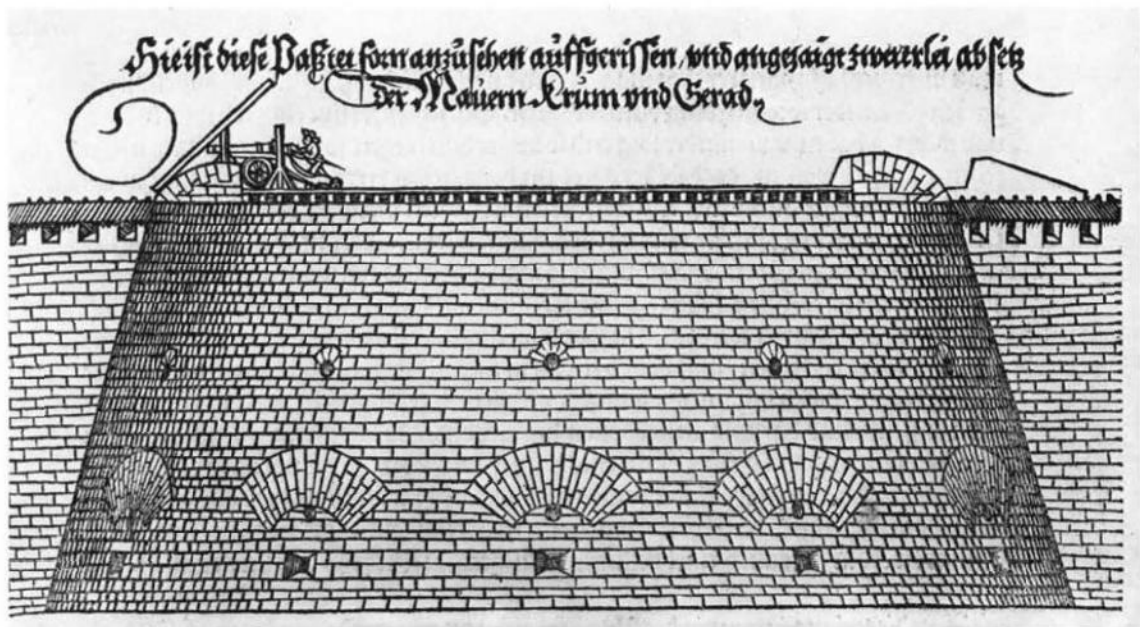 Hie ist diese Paßtei forn anzusehen auffgerissen/ vnd angezaigt zweierlei absetz
der Mauern Krum vnd Gerad.